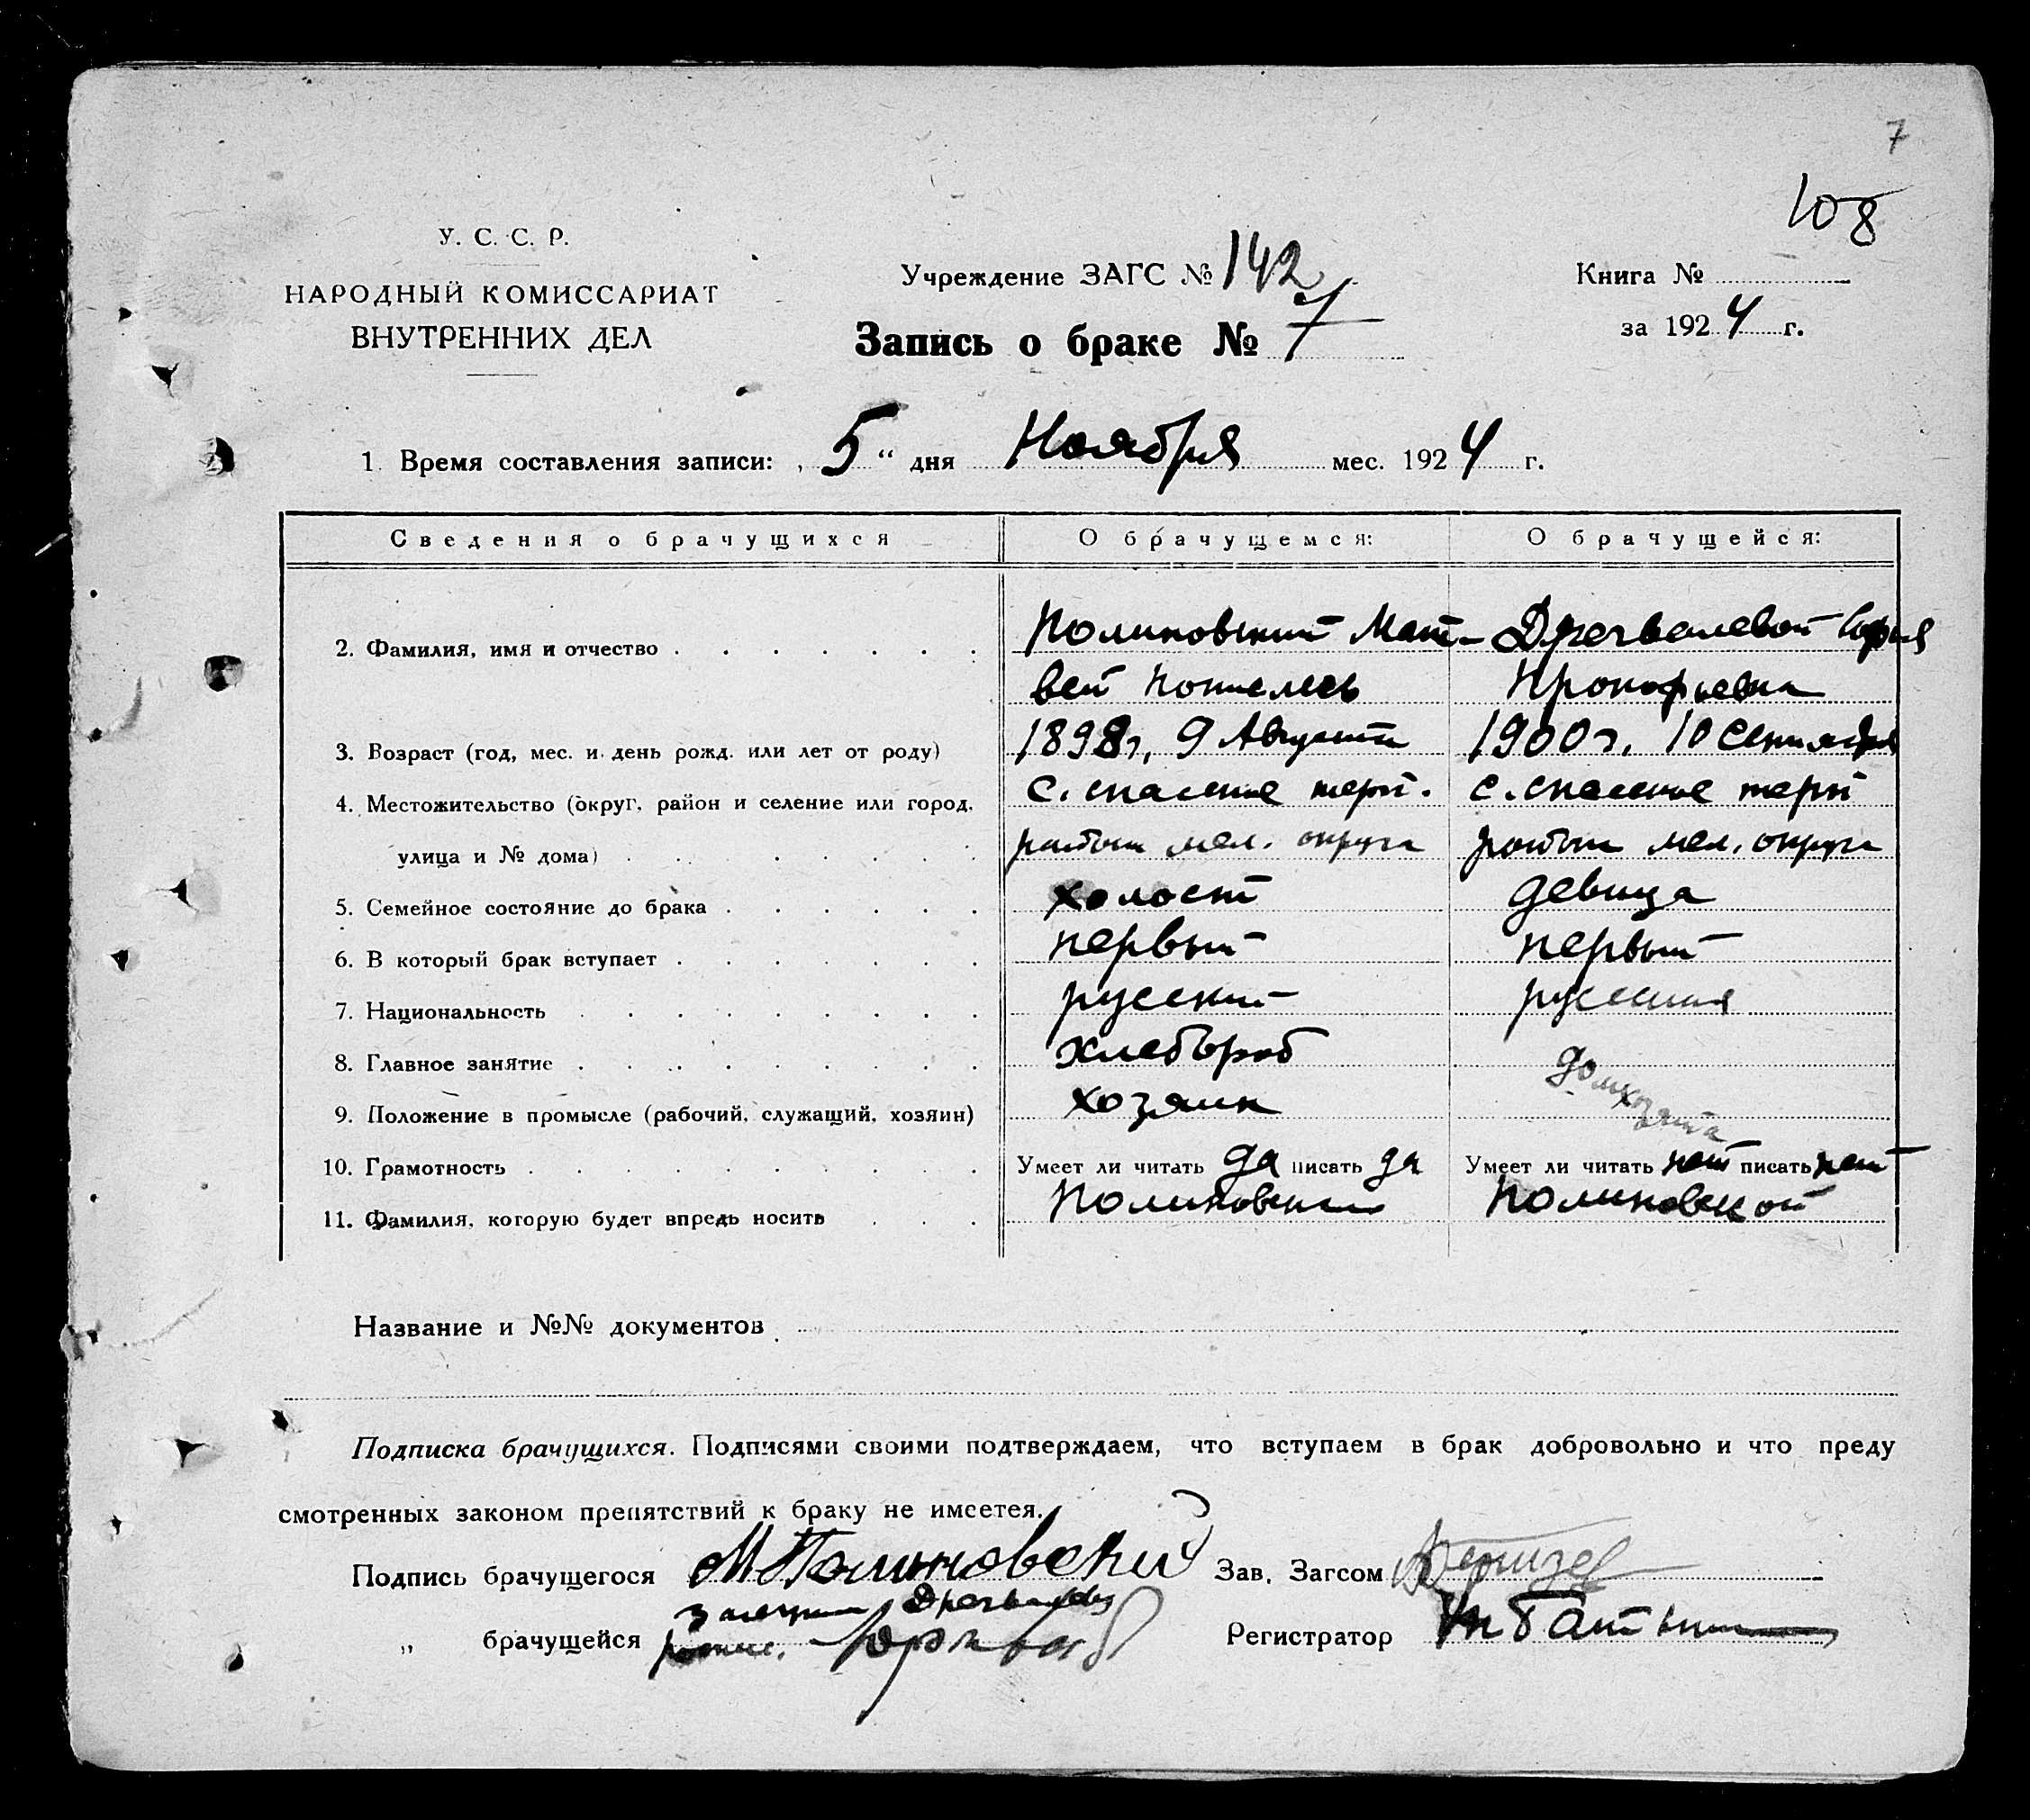 7
108
У. С. С. Р.
НАРОДНЫЙ КОМИССАРИАТ
ВНУТРЕННИХ ДЕЛ
Учреждение ЗАГС № 142
Запись о браке № 7
Книга №
за 1924 г.
1. Время составления записи: „5“ дня Ноября мес. 1924 г.
Сведения о брачущихся О брачущемся: О брачущейся:
2. Фамилия, имя и отчество Полиновский Мат- Дрегвалевой София
вей Прокофьевна
3. Возраст (год, мес. и день рожд. или лет от роду) 1898 г, 9 Августа 1900 г. 10 Сентября
4. Местожительство (округ, район и селение или город, с. спаское терп. с. спаское терп
улица и № дома) мел. округа мел. округа
5. Семейное состояние до брака холост девица
6. В который брак вступает первый первый
7. Национальность русский русская
8. Главное занятие хлебороб домхозяйка
9. Положение в промысле (рабочий, служащий, хозяин) хозяин
10. Грамотность Умеет ли читать да писать да Умеет ли читать нет писать нет
11. Фамилия, которую будет впредь носить Полиновский Полиновской
Название и №№ документов
Подписка брачущихся. Подписями своими подтверждаем, что вступаем в брак добровольно и что преду
смотренных законом препятствий к браку не имсетея.
Подпись брачущегося М Полиновский Зав. Загсом
„ брачущейся Регистратор